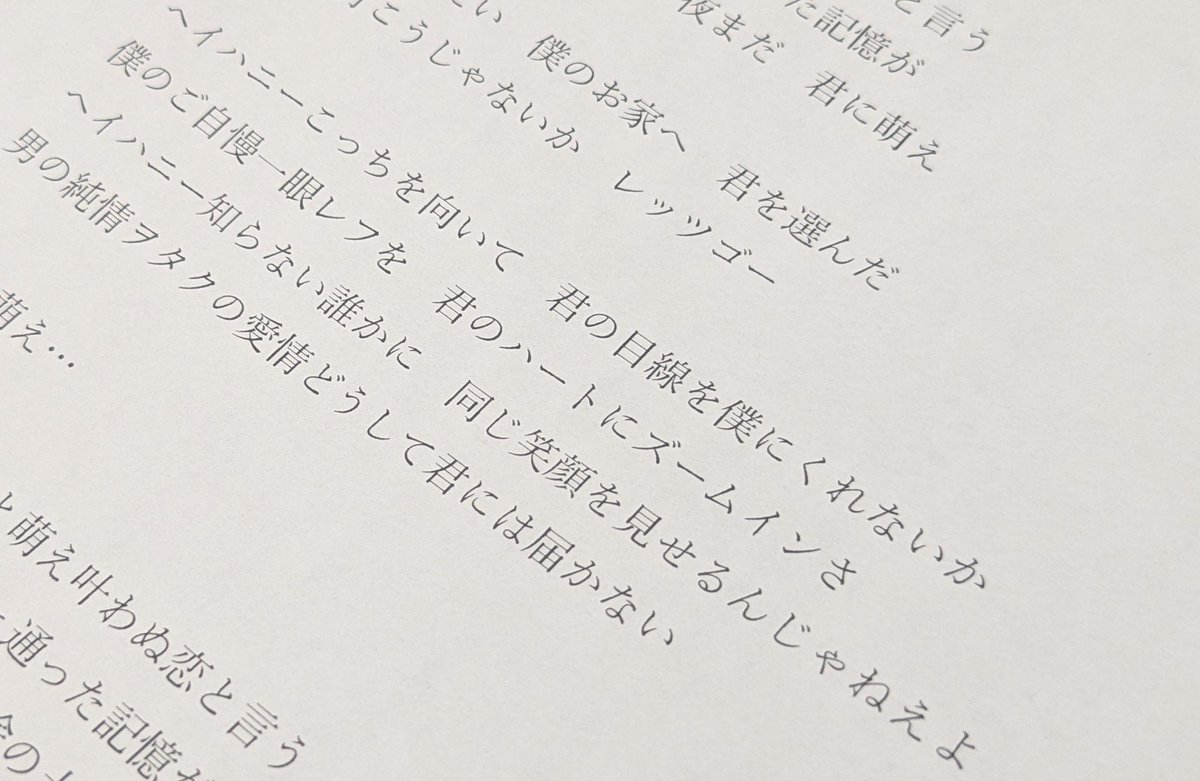 と言う
た記憶が
夜まだ　君に萌え
たい　僕のお家へ　君を選んだ
こうじゃないか　レッツゴー
ヘイハニーこっちを向いて　君の目線を僕にくれないか
僕のご自慢一眼レフを　君のハートにズームインさ
ヘイハニー知らない誰かに　同じ笑顔を見せるんじゃねえよ
男の純情ヲタクの愛情どうして君には届かない
萌え…
と萌え叶わぬ恋と言う
通った記憶が
の